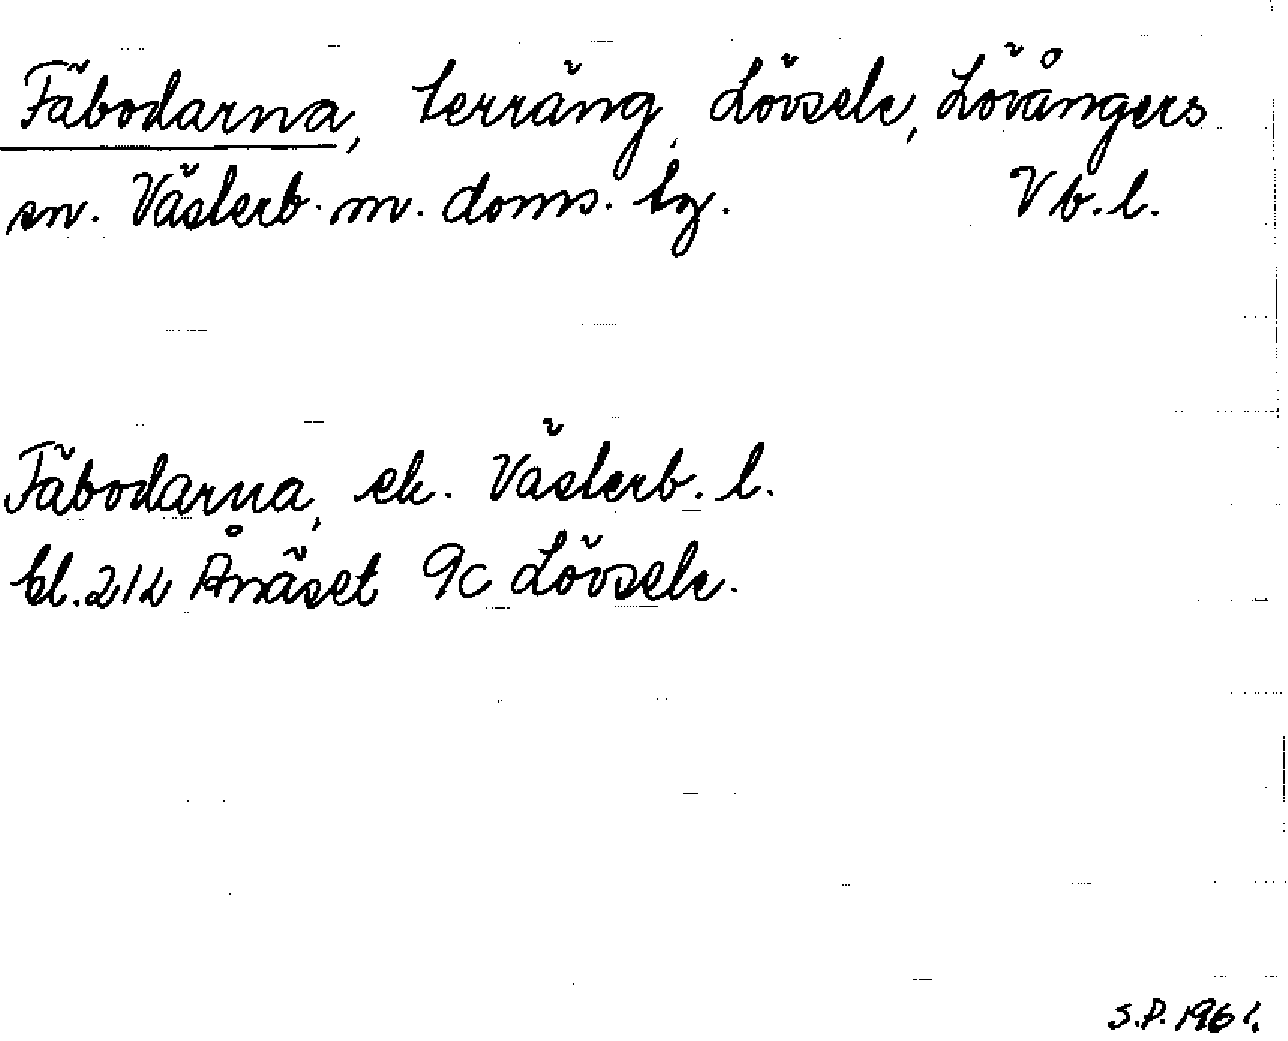 Fäbodarna, terräng, Lövsele, Lövångers
sn. Västerb. m. doms. tg. Vb. l.
Fäbodarna, ek. Västerb. l.
bl. 212 Ånäset 9c Lövsele.
S.P. 1961.